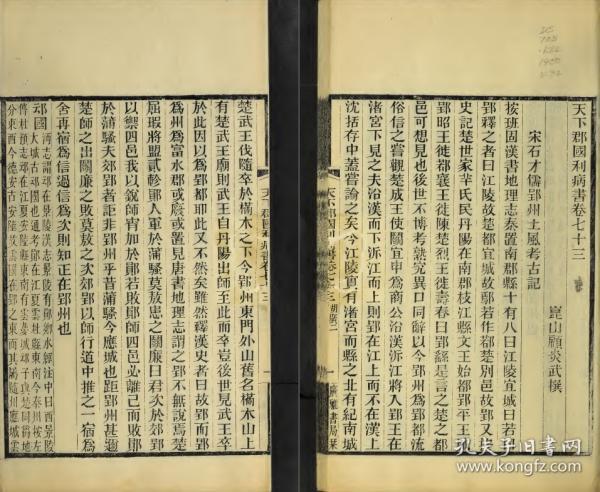 天下郡國利病書卷七十三
崑山顧炎武撰
宋石才儒郢州土風考古記
按班固漢書地理志秦置南郡縣十有八曰江陵宜城曰若曰
郢釋之者曰江陵故楚都宜城故鄢若作鄀楚別邑故郢又按
史記楚世家羋氏居丹陽在南郡枝江縣文王始都郢平王城
郢昭王徙都鄀襄王徙陳楚烈王徙壽春曰郢繇是言之楚之都
邑可想見也後世不博考熟究異口同辭以今郢州為郢都流
俗信之嘗觀楚成王使鬬宜申為商公沿漢泝江將入郢王在
渚宮下見之夫沿漢而下泝江而上則郢在江上而不在漢上
沈括存中蓋嘗論之矣今江陵實有渚宮而縣之北有紀南城
天下郡國利病書卷七十三 湖廣二
一
廣雅書局栞
楚武王伐隨卒於樠木之下今郢州東門外山舊名樠木山上
有楚武王廟則武王自丹陽出師至此而卒豈後世見武王卒
於此因以為郢都即此又不然矣雖然釋漢史者曰故而郢
為州為富水郡或廢或置見唐書地理志謂之郢不無說焉楚
屈瑕將盟貳軫鄖人軍於蒲騷莫敖患之鬬廉曰君次於郊郢
以禦四邑我以銳師宵加於鄖若敗鄖師四邑必離已而敗鄖
於蒲騷夫郊郢者詎非郢州乎昔蒲騷今應城也距郢州甚邇
楚師之出鬬廉之敗莫敖之次郊郢以師行道中推之一宿為
舍再宿為信過信為次則知正在郢州也
鄖國
孔夫子旧书网
www.kongfz.com